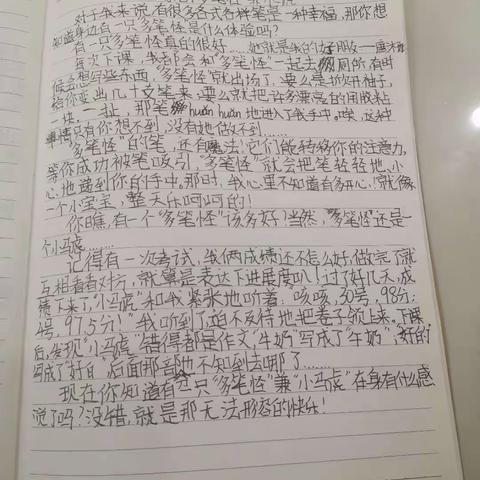 对于我来说,有很多各式各样笔是一种幸福,那你想
知道身边有一只多笔怪是什么体验吗?
有一只"多笔怪"真的很好……她就是我的好朋友—唐
每次下课,我都会和"多笔怪"一起去厕所,有时
候会想写些东西,"多笔怪"就出场了,要么是折开柚子,
给你变出几十支笔来,要么就把许多漂亮的用胶粘
一往一扯,那笔 huán huán 地进入了我手中。唉,这种
事情只有你想不到,没有她做不到……
"多笔怪"的笔,还有魔法:它们能转移你的注意力,
等你成功被笔吸引,"多笔怪"就会把笔轻轻地、小
心地递到你的手中。那时,我心里不知道有多开心!就像
一个小宝宝,整天乐呵呵的!
你瞧,有一个"多笔怪"该多好!当然,"多笔怪"还是一
个小马虎……
记得有一次考试,我俩成绩还不怎么好,做完了就
互相看着对方,就算是表达下进展度叭!过了好几天,成
绩下来了,"小马虎"和我紧张地听着:咳咳,30号,98分;
4号,97.5分!"我听到了,迫不及待地把卷子领上来。下课
后,发现"小马虎"错得都是作文"牛奶"写成了"午奶","好的"
写成了"好白",后面那部也不知到去哪了……
现在你知道有一只"多笔怪"兼"小马虎"在身有什么感
觉了吗?没错,就是那无法形容的快乐!